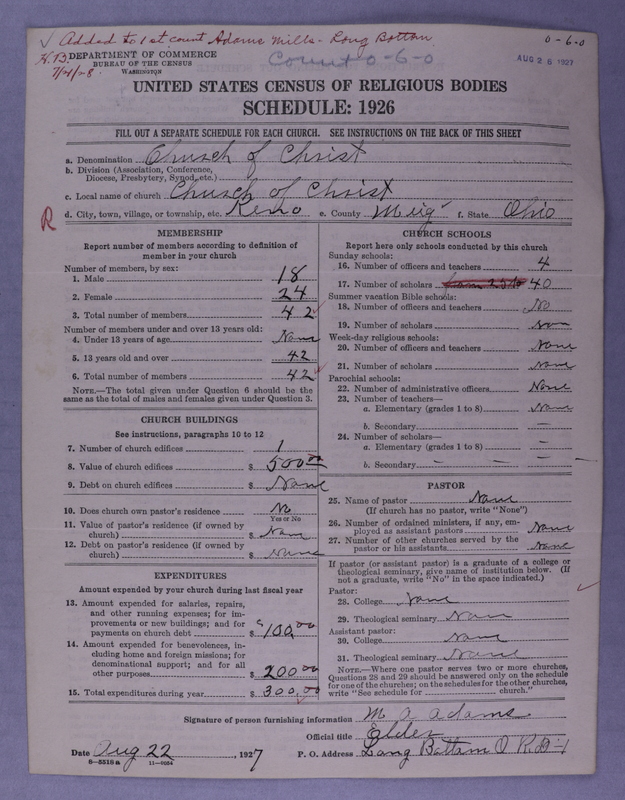 ✓ Added to 1st count Adams Mills - Long Bottom
0-6-0
H.B.
7/21/28.
DEPARTMENT OF COMMERCE
BUREAU OF THE CENSUS
WASHINGTON
Count 0-6-0
AUG 26 1927
UNITED STATES CENSUS OF RELIGIOUS BODIES
SCHEDULE: 1926
FILL OUT A SEPARATE SCHEDULE FOR EACH CHURCH. SEE INSTRUCTIONS ON THE BACK OF THIS SHEET
a. Denomination Church of Christ
b. Division (Association, Conference,
Diocese, Presbytery, Synod, etc.)
c. Local name of church Church of Christ
R
d. City, town, village, or township, etc. Reno e. County Meig f. State Ohio
MEMBERSHIP
Report number of members according to definition of
member in your church
Number of members, by sex:
1. Male 18
2. Female 24
3. Total number of members 42 ✓
Number of members under and over 13 years old:
4. Under 13 years of age None
5. 13 years old and over 42
6. Total number of members 42 ✓
NOTE.—The total given under Question 6 should be the
same as the total of males and females given under Question 3.
CHURCH BUILDINGS
See instructions, paragraphs 10 to 12
7. Number of church edifices 1
8. Value of church edifices $ 500 00
9. Debt on church edifices $ None
10. Does church own pastor's residence No
Yes or No
11. Value of pastor's residence (if owned by
church) $ None
12. Debt on pastor's residence (if owned by
church) $ None
EXPENDITURES
Amount expended by your church during last fiscal year
13. Amount expended for salaries, repairs,
and other running expenses; for im-
provements or new buildings; and for
payments on church debt $ 100,00
14. Amount expended for benevolences, in-
cluding home and foreign missions; for
denominational support; and for all
other purposes $ 200 00
15. Total expenditures during year $ 300,00
CHURCH SCHOOLS
Report here only schools conducted by this church
Sunday schools:
16. Number of officers and teachers 4
17. Number of scholars 40
Summer vacation Bible schools:
18. Number of officers and teachers No
19. Number of scholars Non
Week-day religious schools:
20. Number of officers and teachers None
21. Number of scholars None
Parochial schools:
22. Number of administrative officers None
23. Number of teachers—
a. Elementary (grades 1 to 8) None
b. Secondary —
24. Number of scholars—
a. Elementary (grades 1 to 8) —
b. Secondary — — — —
PASTOR
25. Name of pastor None
(If church has no pastor, write "None")
26. Number of ordained ministers, if any, em-
ployed as assistant pastors None
27. Number of other churches served by the
pastor or his assistants None
If pastor (or assistant pastor) is a graduate of a college or
theological seminary, give name of institution below. (If
not a graduate, write "No" in the space indicated.)
Pastor:
28. College None
29. Theological seminary None
Assistant pastor:
30. College None
31. Theological seminary None
NOTE.—Where one pastor serves two or more churches,
Questions 28 and 29 should be answered only on the schedule
for one of the churches; on the schedules for the other churches,
write "See schedule for church."
Signature of person furnishing information M A Adams
Official title Elder
Date Aug 22, 1927 P. O. Address Long Bottom O R.D-1
8-5518a 11-9054